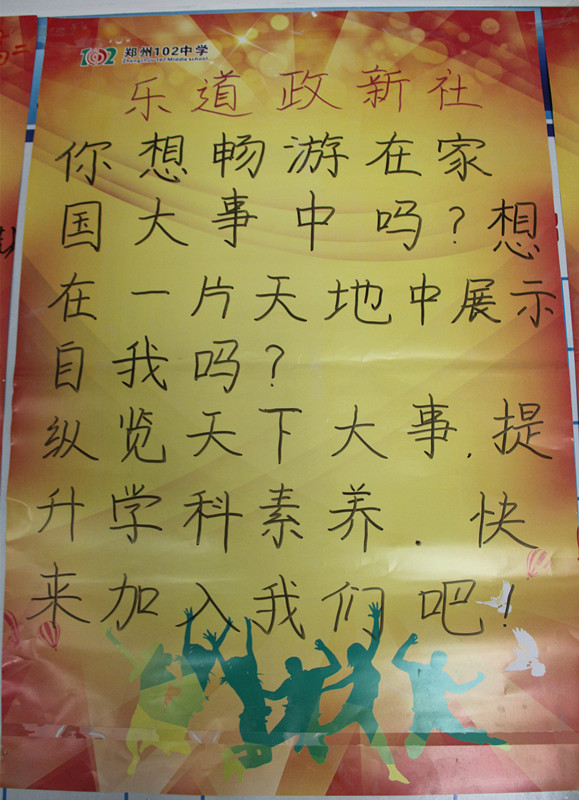 102 郑州102中学
Zhengzhou 102 Middle school
乐道政新社
你想畅游在家
国大事中吗?想
在一片天地中展示
自我吗?
纵览天下大事.提
升学科素养.快
来加入我们吧!
高二